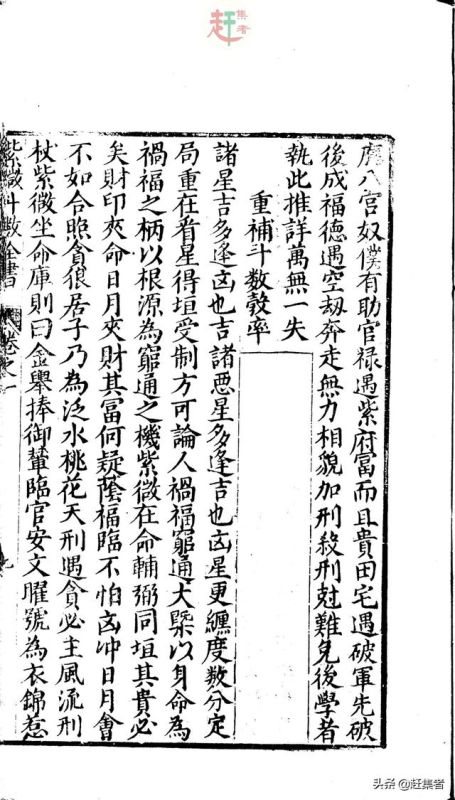 趕集者
應八宮奴僕有助官禄遇紫府冨而且貴田宅遇破軍先破
後成福德遇空刼奔走無力相貌加刑殺刑尅難免後學者
執此推詳萬無一失
重補斗数彀率
諸星吉多逢凶也吉諸惡星多逢吉也凶星更纏度数分定
局重在看星得垣受制方可論人禍福窮通大槩以身命為
禍福之柄以根源為窮通之機紫微在命輔弼同垣其貴必
矣財印夾命日月夾財其冨何疑蔭福臨不怕凶冲日月會
不如合照貪狼居子乃為泛水桃花天刑遇貪必主風流刑
杖紫微坐命庫則曰金轝捧御輦臨官安文曜號為衣錦惹
紫微斗数全書 卷之一
头条 @赶集者